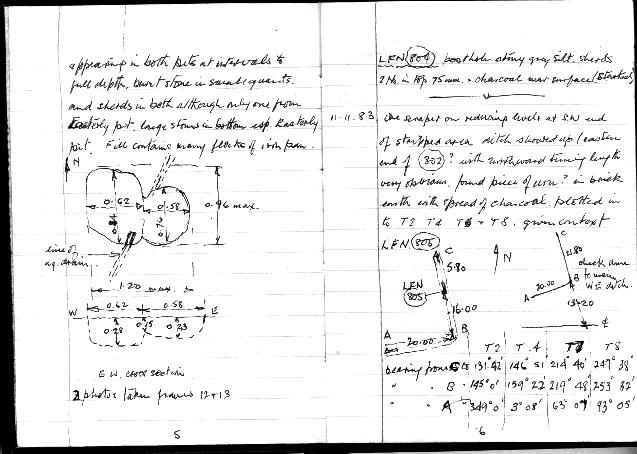 appearing in both pits at intervals to
full depth, burnt stone in small quants.
and sherds in both although only one from
Easterly pit. large stones in bottom esp. Easterly
pit. Fill contains many flecks of iron pan.
N
0.62
0.58
0.84
0.76
0.96 max.
line of
ag. drain
1.20 max.
W
0.62
0.58
E
0.28
0.15
0.23
E.W. cross section
2 photos taken frames 12+13
5
LEN 804 posthole stony grey silt. sherds
2 No. in top 75 mm. - charcoal near surface
11.11.83
one scraper on reducing levels at SW end
of stripped area ditch showed up (eastern
end of 802? with northward turning length
very obscure. found piece of iron? in brick
earth with spread of charcoal. plotted in
to T2 T4 T6 + T8. given context
LEN 805
C
5.80
N
LEN
805
16.00
A
20.00
B
C
21.80
20.00
A
B
13.20
check
to
W E ditch.
T2 T.4 T7 T8
bearing from C 131°42' 146°51' 214°40' 247°38'
" B 145°0' 159°22' 219°48' 253°32'
" A 349°0' 3°08' 63°07' 93°05'
6